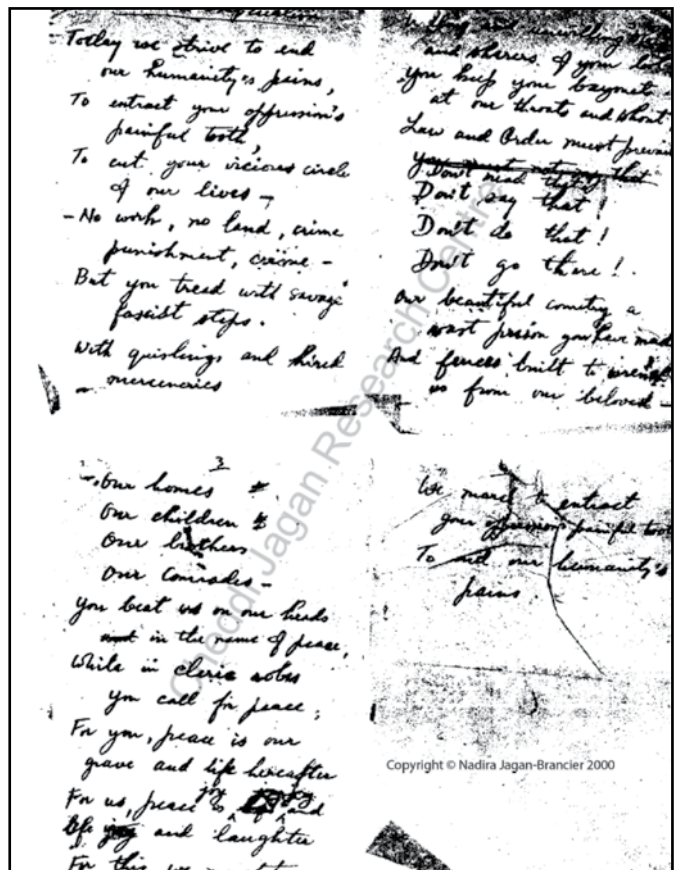 Today we strive to end
our humanity's pains,
To extract your oppression's
painful tooth,
To cut your vicious circle
of our lives –
– No work, no land, crime
punishment, crime –
But you tread with savage
fascist steps.
With quislings and hired
mercenaries
Willing and unwilling
and sharers of your loot
you keep your bayonets
at our throats and shout
Law and Order must prevail
you must not say that
Don't read that!
Don't say that!
Don't do that!
Don't go there!
Our beautiful country a
vast prison you have made
And fences built to
us from our beloved –
3
– Our homes
Our children
Our brothers
Our comrades –
you beat us on our heads
in the name of peace,
While in cleric robes
you call for peace;
For you, peace is our
grave and life hereafter
joy
For us, peace is and
life joy and laughter
For this we
We march to extract
your oppression's painful tooth
To end our humanity's
pains
Cheddi Jagan Research Centre
Copyright © Nadira Jagan-Brancier 2000